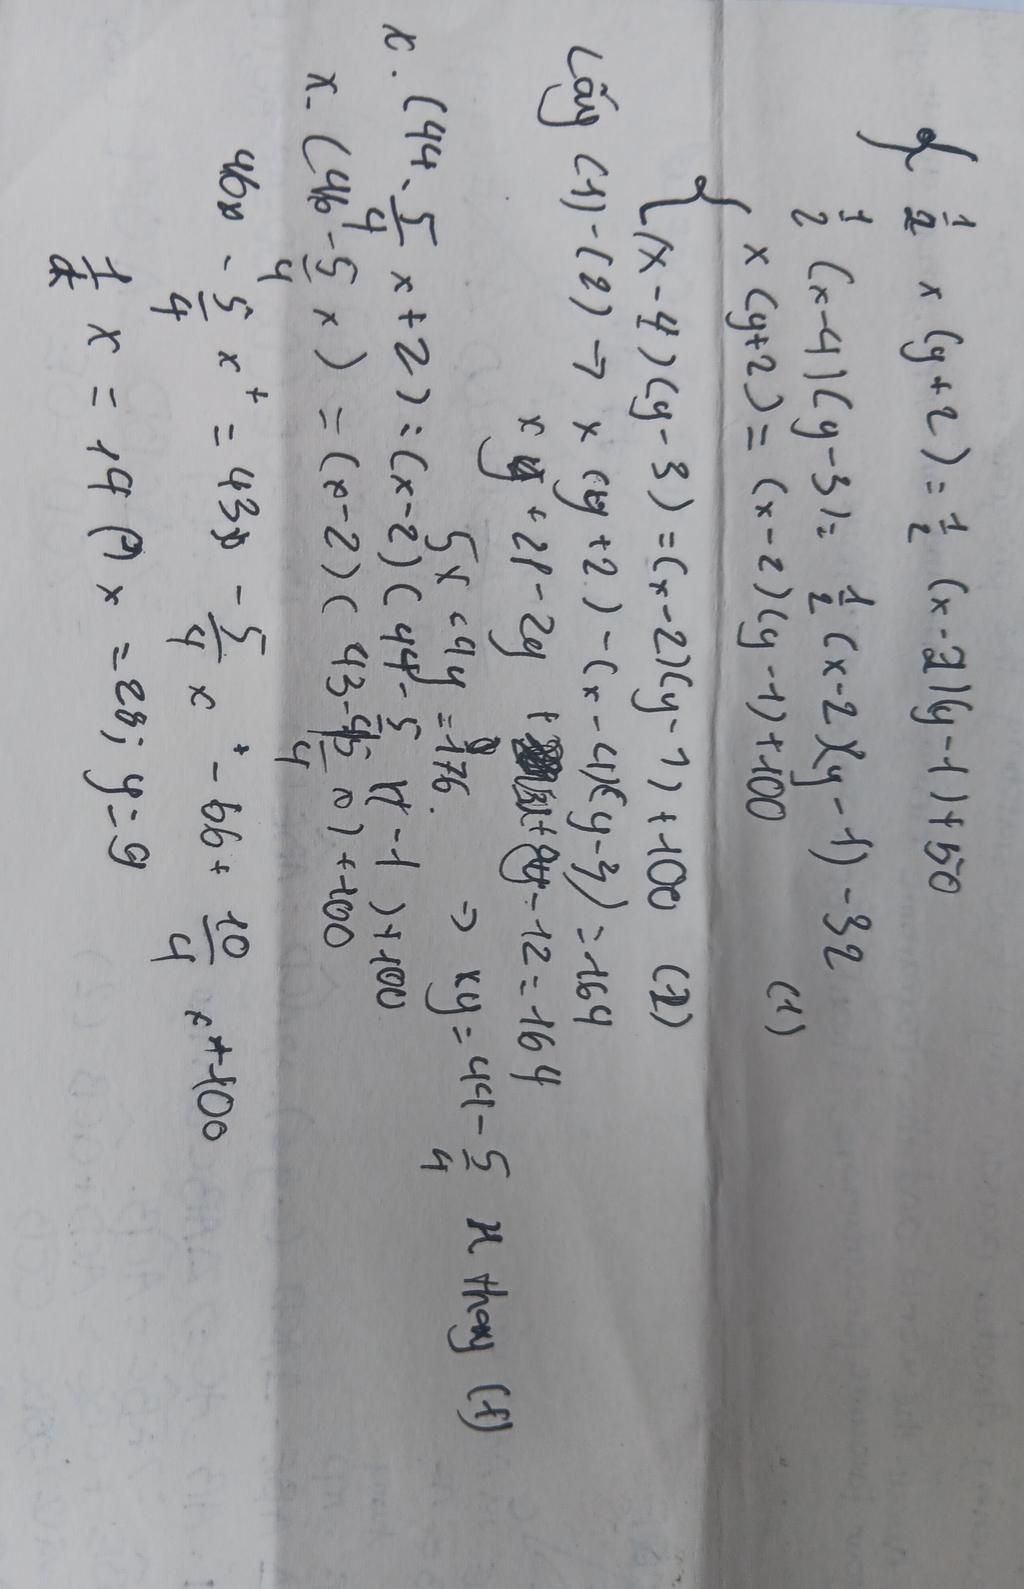 { 1/2 x (y+2) = 1/2 (x-2)(y-1)+50
1/2 (x-4)(y-3) = 1/2 (x-2)(y-1) - 32
{ x(y+2) = (x-2)(y-1)+100 (1)
(x-4)(y-3) = (x-2)(y-1)+100 (2)
Lấy (1)-(2) → x(y+2) - (x-4)(y-3) = 164
xy + 2y - 2y - 12 = 164
5x + 4y = 176. ⇒ xy = 44 - 5/4 x thay (1)
x. (44 - 5/4 x + 2) = (x-2)(44 - 5/4 x - 1) + 100
x. (46 - 5/4 x) = (x-2)(43 - 5/4 x) + 100
46x - 5/4 x² = 43x - 5/4 x² - 86 + 10/4 x + 100
1/2 x = 14 (⇒) x = 28; y = 9